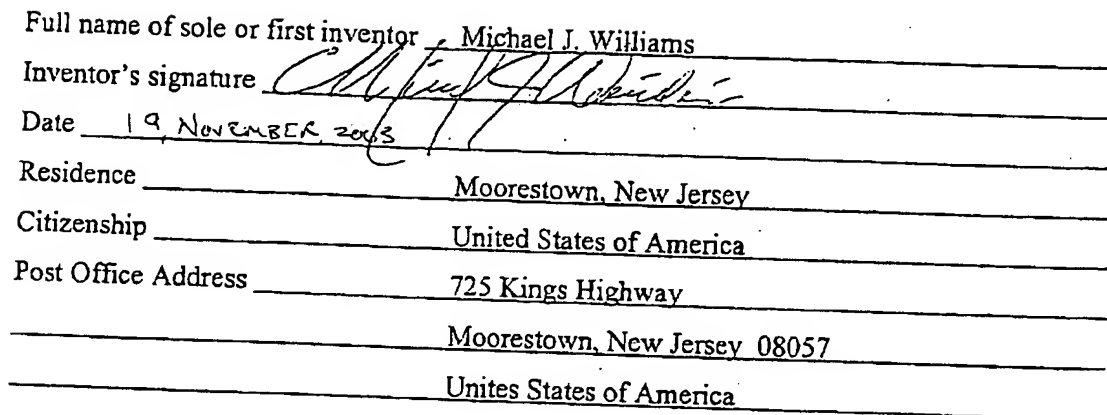 Full name of sole or first inventor Michael J. Williams
Inventor's signature
Date 19 NOVEMBER 2003
Residence Moorestown, New Jersey
Citizenship United States of America
Post Office Address 725 Kings Highway
Moorestown, New Jersey 08057
Unites States of America